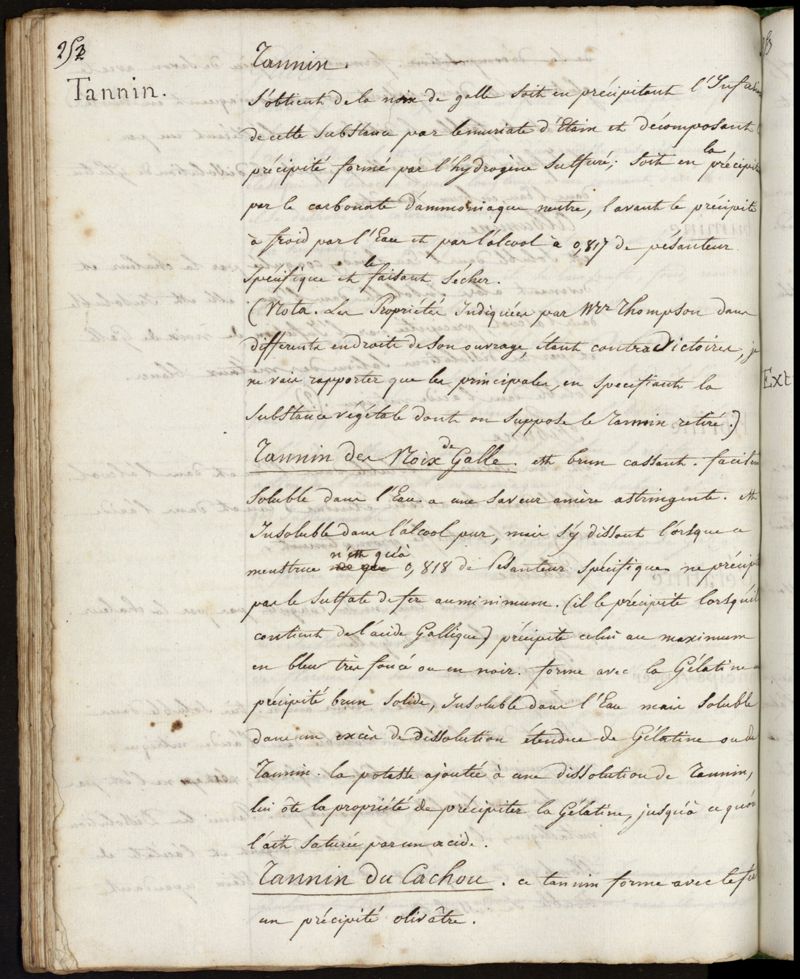 252
Tannin.
Tannin.
S'obtient de la noix de galle soit en précipitant l'Infusion
de cette substance par le muriate d'Etain et décomposant
précipité formé par l'hydrogène sulfuré; soit en la précipit
par le carbonate d'ammoniaque neutre, lavant le precipité
à froid par l'Eau et par l'alcool à 0,817 de pesanteur
Spécifique et le faisant sécher.
(Nota. Les Propriétés Indiquées par Mr Thompson dans
differents endroits de son ouvrage, étant contradictoires, je
ne vais rapporter que les principales, en specifiant la
Substance végétale dont on suppose le Tannin retiré.)
Tannin des Noix de Galle. est brun cassant. facilem
Soluble dans l'Eau a une saveur amère astringente. est
Insoluble dans l'alcool pur, mais s'y dissout lorsque ce
menstrue n'est qu'à 0,818 de Pesanteur Spécifique ne précipi
par le Sulfate de fer au minimum. (il le précipite lorsqu'il
contient de l'acide Gallique) précipite celui au maximum
en bleu très foncé ou en noir. forme avec la Gélatine
précipité brun solide, Insoluble dans l'Eau mais soluble
dans un excès de dissolution étendue de Gélatine ou de
Tannin. la potasse ajoutée à une dissolution de Tannin,
lui ôte la propriété de précipiter la Gélatine, jusqu'à ce qu'on
l'ait saturée par un acide.
Tannin du Cachou. ce tannin forme avec le fer
un précipité olivâtre.
Ext